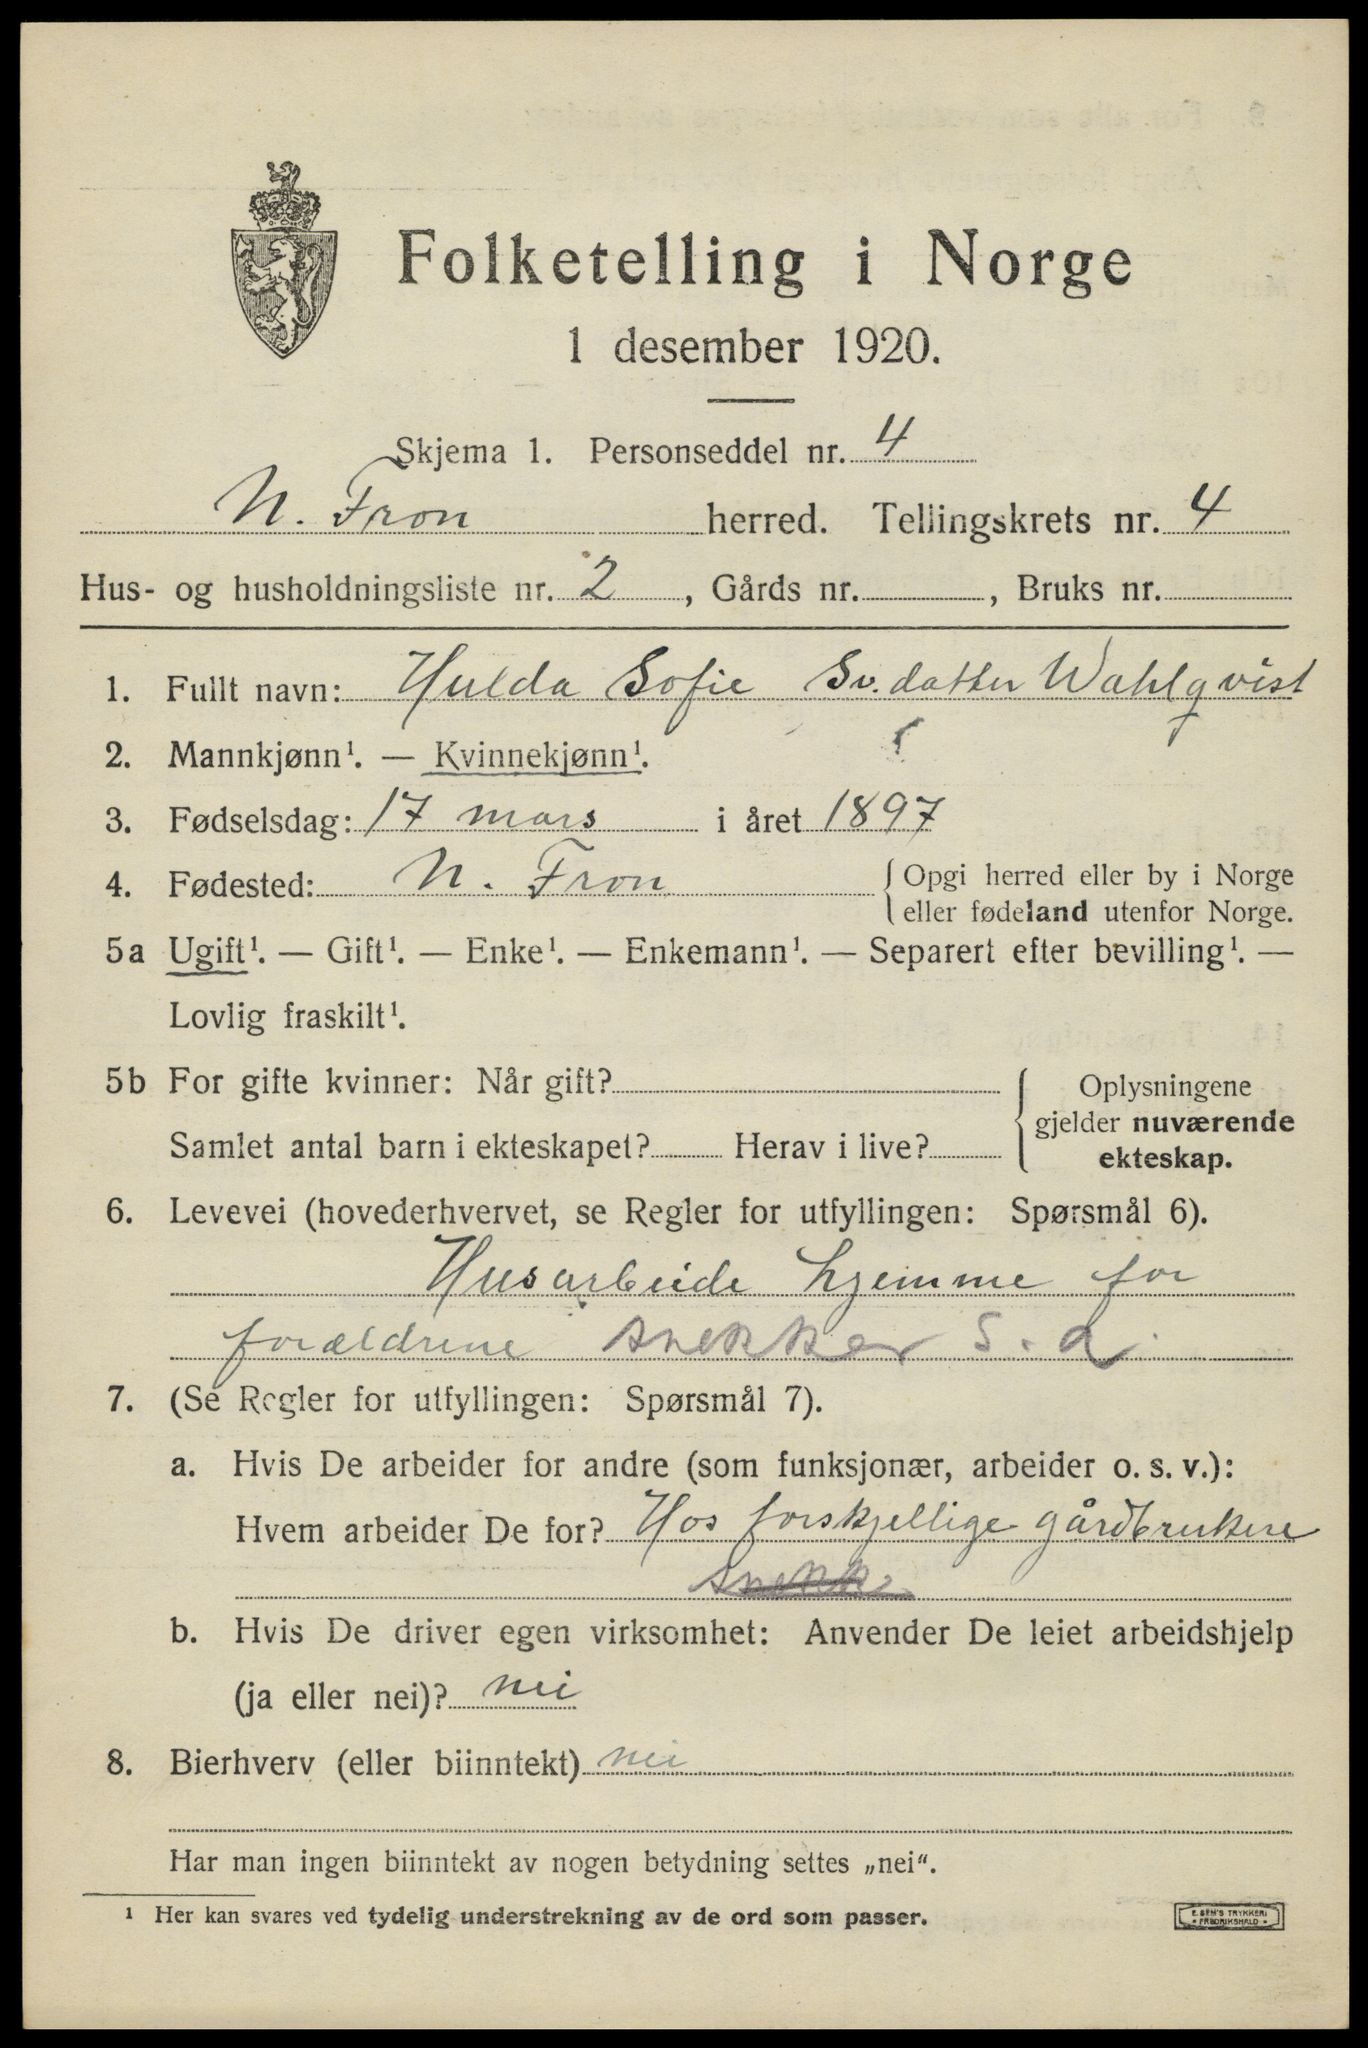 Folketelling i Norge
1 desember 1920.
Skjema 1. Personseddel nr. 4
N. Fron herred. Tellingskrets nr. 4
Hus- og husholdningsliste nr. 2, Gårds nr. , Bruks nr.
1. Fullt navn: Hulda Sofie Sv. datter Wahlqvist
2. Mannkjønn¹. — Kvinnekjønn¹.
3. Fødselsdag: 17 mars i året 1897
4. Fødested: N. Fron { Opgi herred eller by i Norge
eller fødeland utenfor Norge.
5a Ugift¹. — Gift¹. — Enke¹. — Enkemann¹. — Separert efter bevilling¹. —
Lovlig fraskilt¹.
5b For gifte kvinner: Når gift? { Oplysningene
gjelder nuværende
Samlet antal barn i ekteskapet? Herav i live?
ekteskap.
6. Levevei (hovederhvervet, se Regler for utfyllingen: Spørsmål 6).
Husarbeide hjemme for
forældrene snekker S. a.
7. (Se Regler for utfyllingen: Spørsmål 7).
a. Hvis De arbeider for andre (som funksjonær, arbeider o. s. v.):
Hvem arbeider De for? Hos forskjellige gårdbrukere
snekk.
b. Hvis De driver egen virksomhet: Anvender De leiet arbeidshjelp
(ja eller nei)? nei
8. Bierhverv (eller biinntekt) nei
Har man ingen biinntekt av nogen betydning settes „nei“.
¹ Her kan svares ved tydelig understrekning av de ord som passer.
E. SEM'S TRYKKERI
• FREDRIKSHALD •